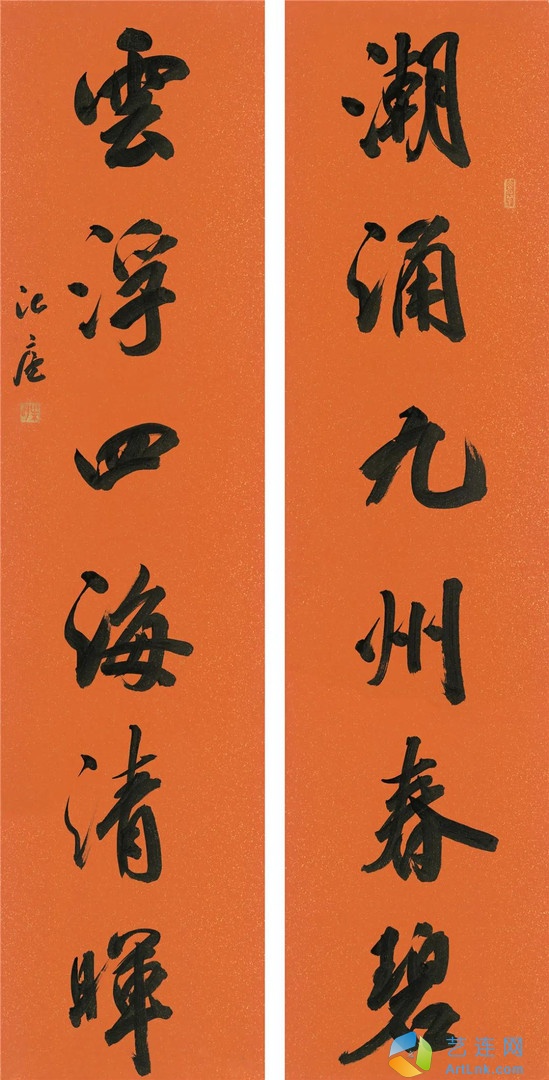 潮涌九州春碧
雲浮四海清暉
艺连网
ArtLink.com